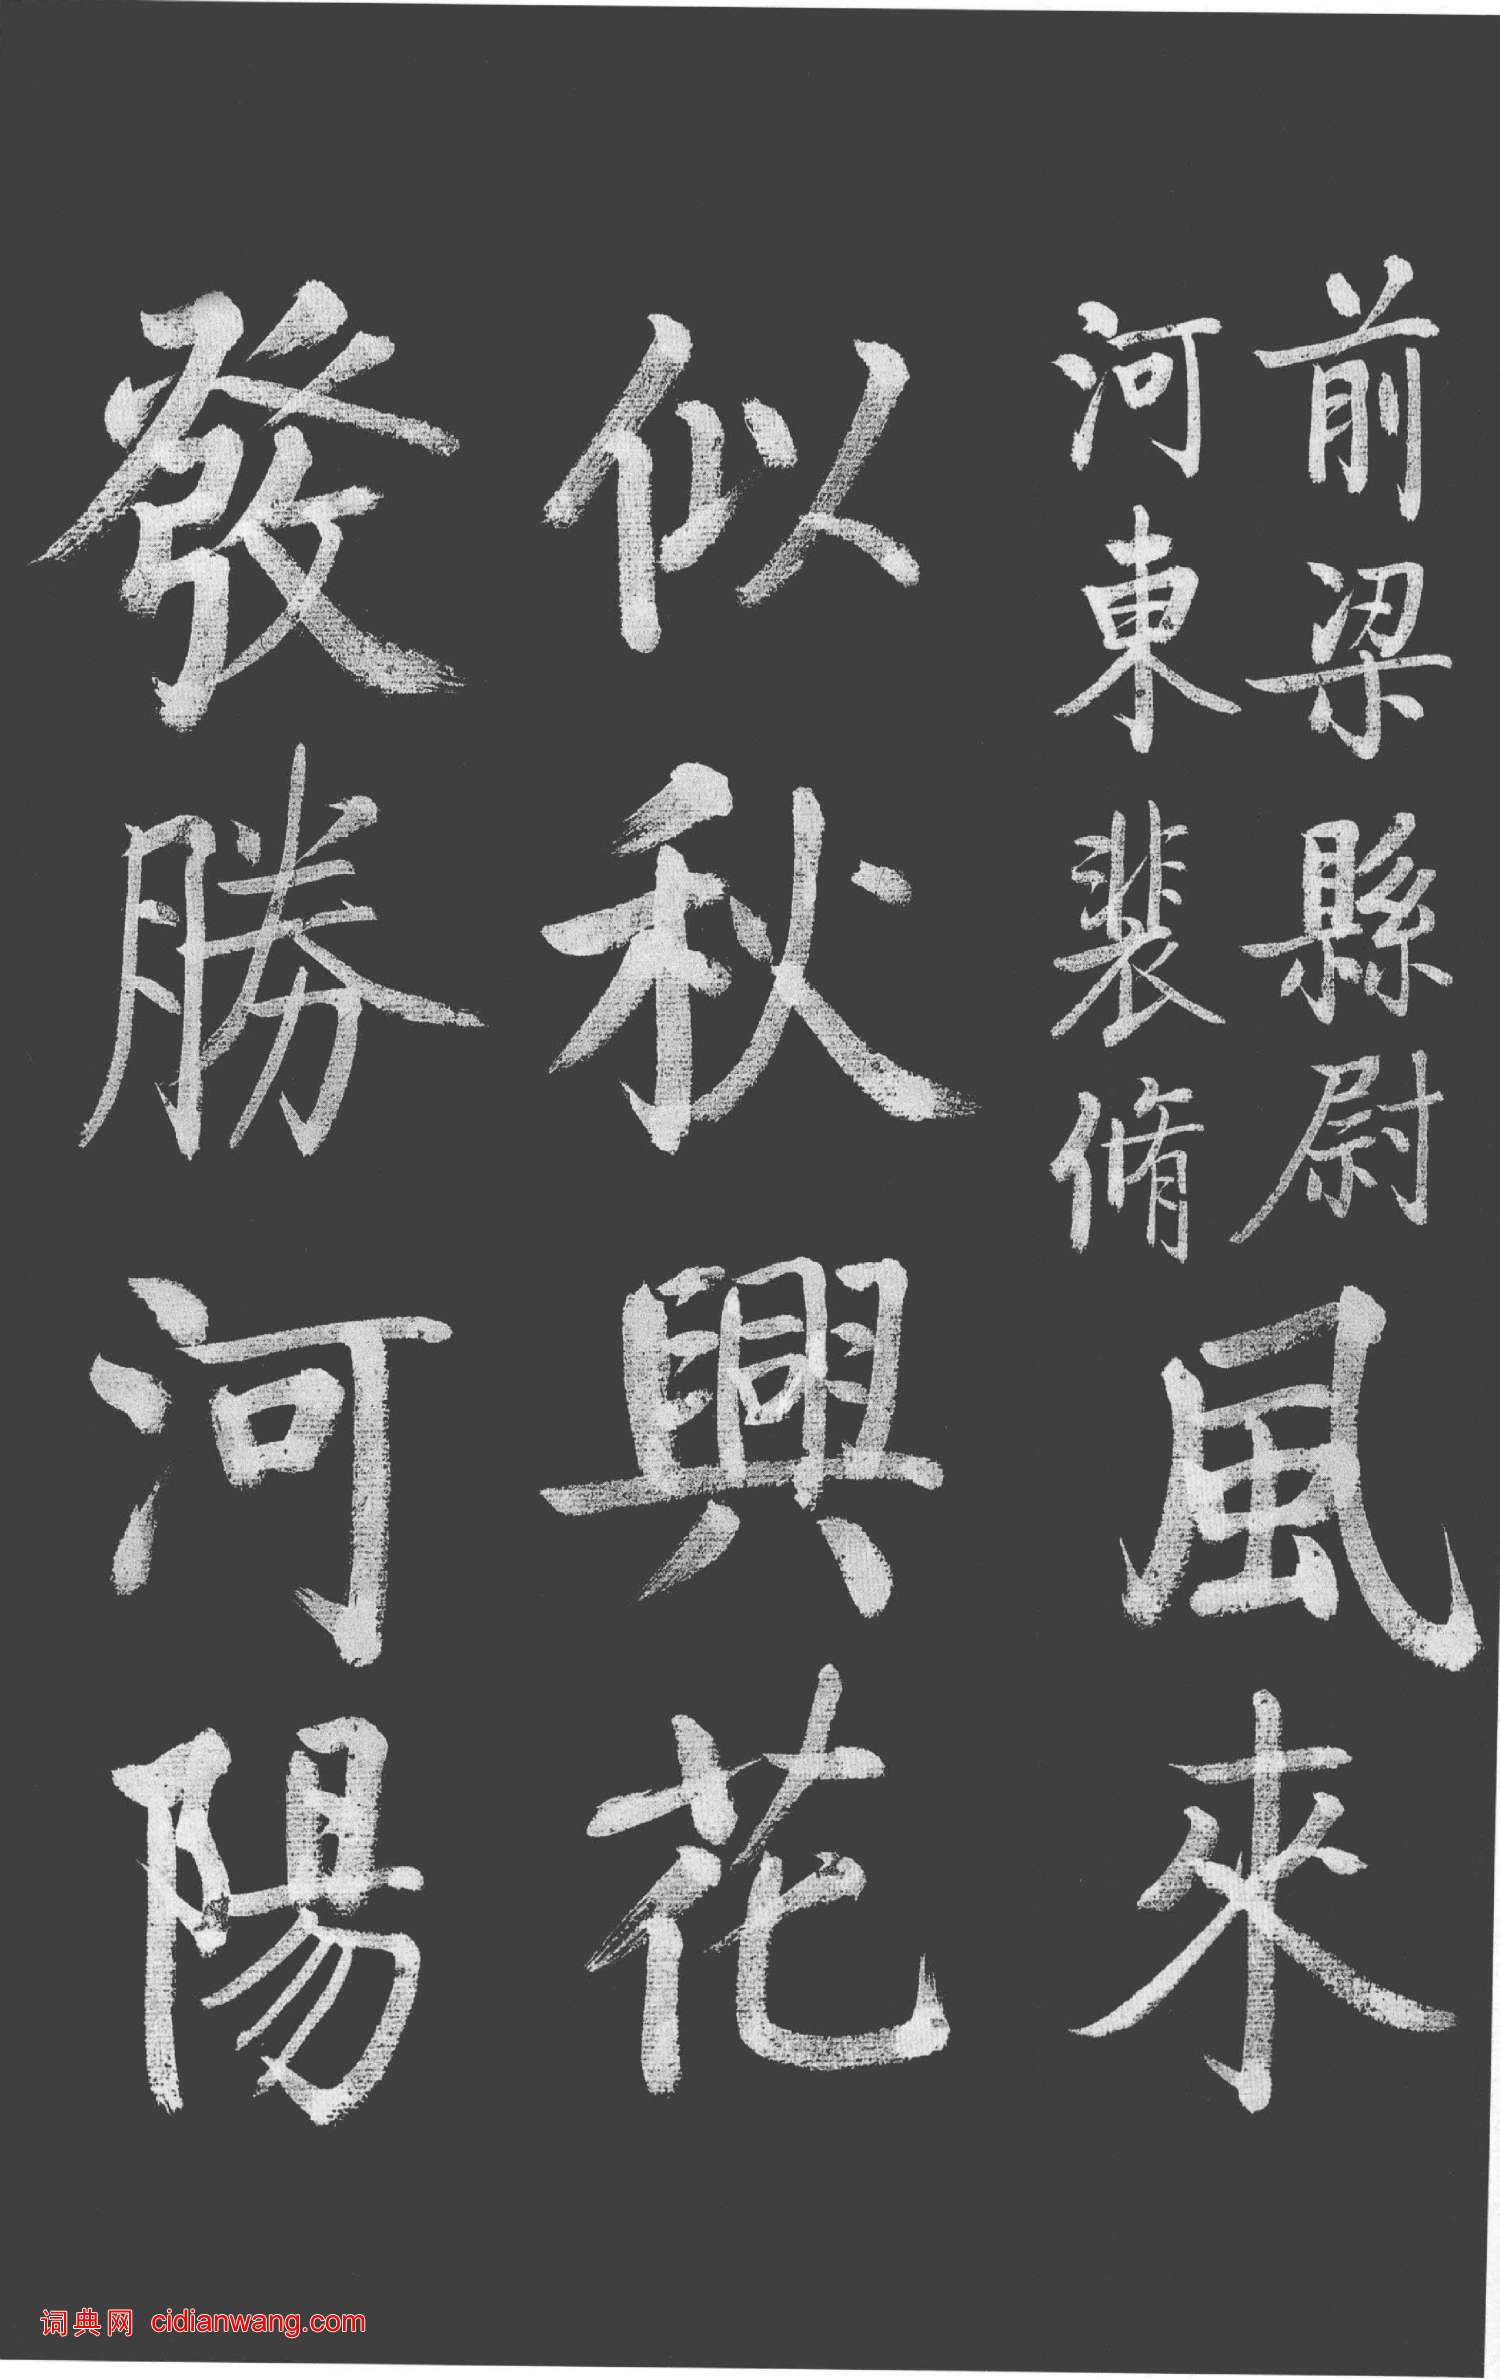 前梁縣尉
河東裴脩
風來
似秋興花
發勝河陽
词典网 cidianwang.com